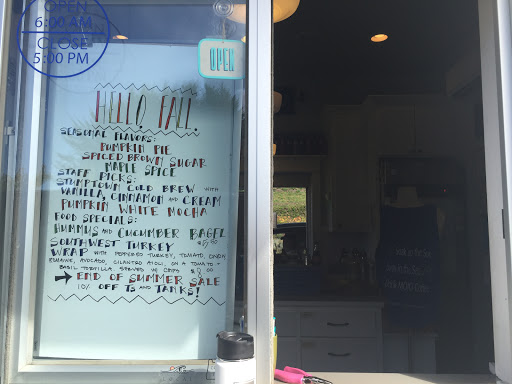 OPEN
6:00 AM
CLOSE
5:00 PM
OPEN
HELLO, FALL.
SEASONAL FLAVORS:
PUMPKIN PIE
SPICED BROWN SUGAR
MAPLE SPICE
STAFF PICKS:
STUMPTOWN COLD BREW WITH
VANILLA, CINNAMON AND CREAM
PUMPKIN WHITE MOCHA
FOOD SPECIALS:
HUMMUS AND CUCUMBER BAGEL
SOUTHWEST TURKEY
WRAP WITH PEPPERED TURKEY, TOMATO, ONION,
ROMAINE, AVOCADO, CILANTRO AIOLI, ON A TOMATO-
BASIL TORTILLA SERVED W/ CHIPS
→ END OF SUMMER SALE
10% OFF TS AND TANKS!